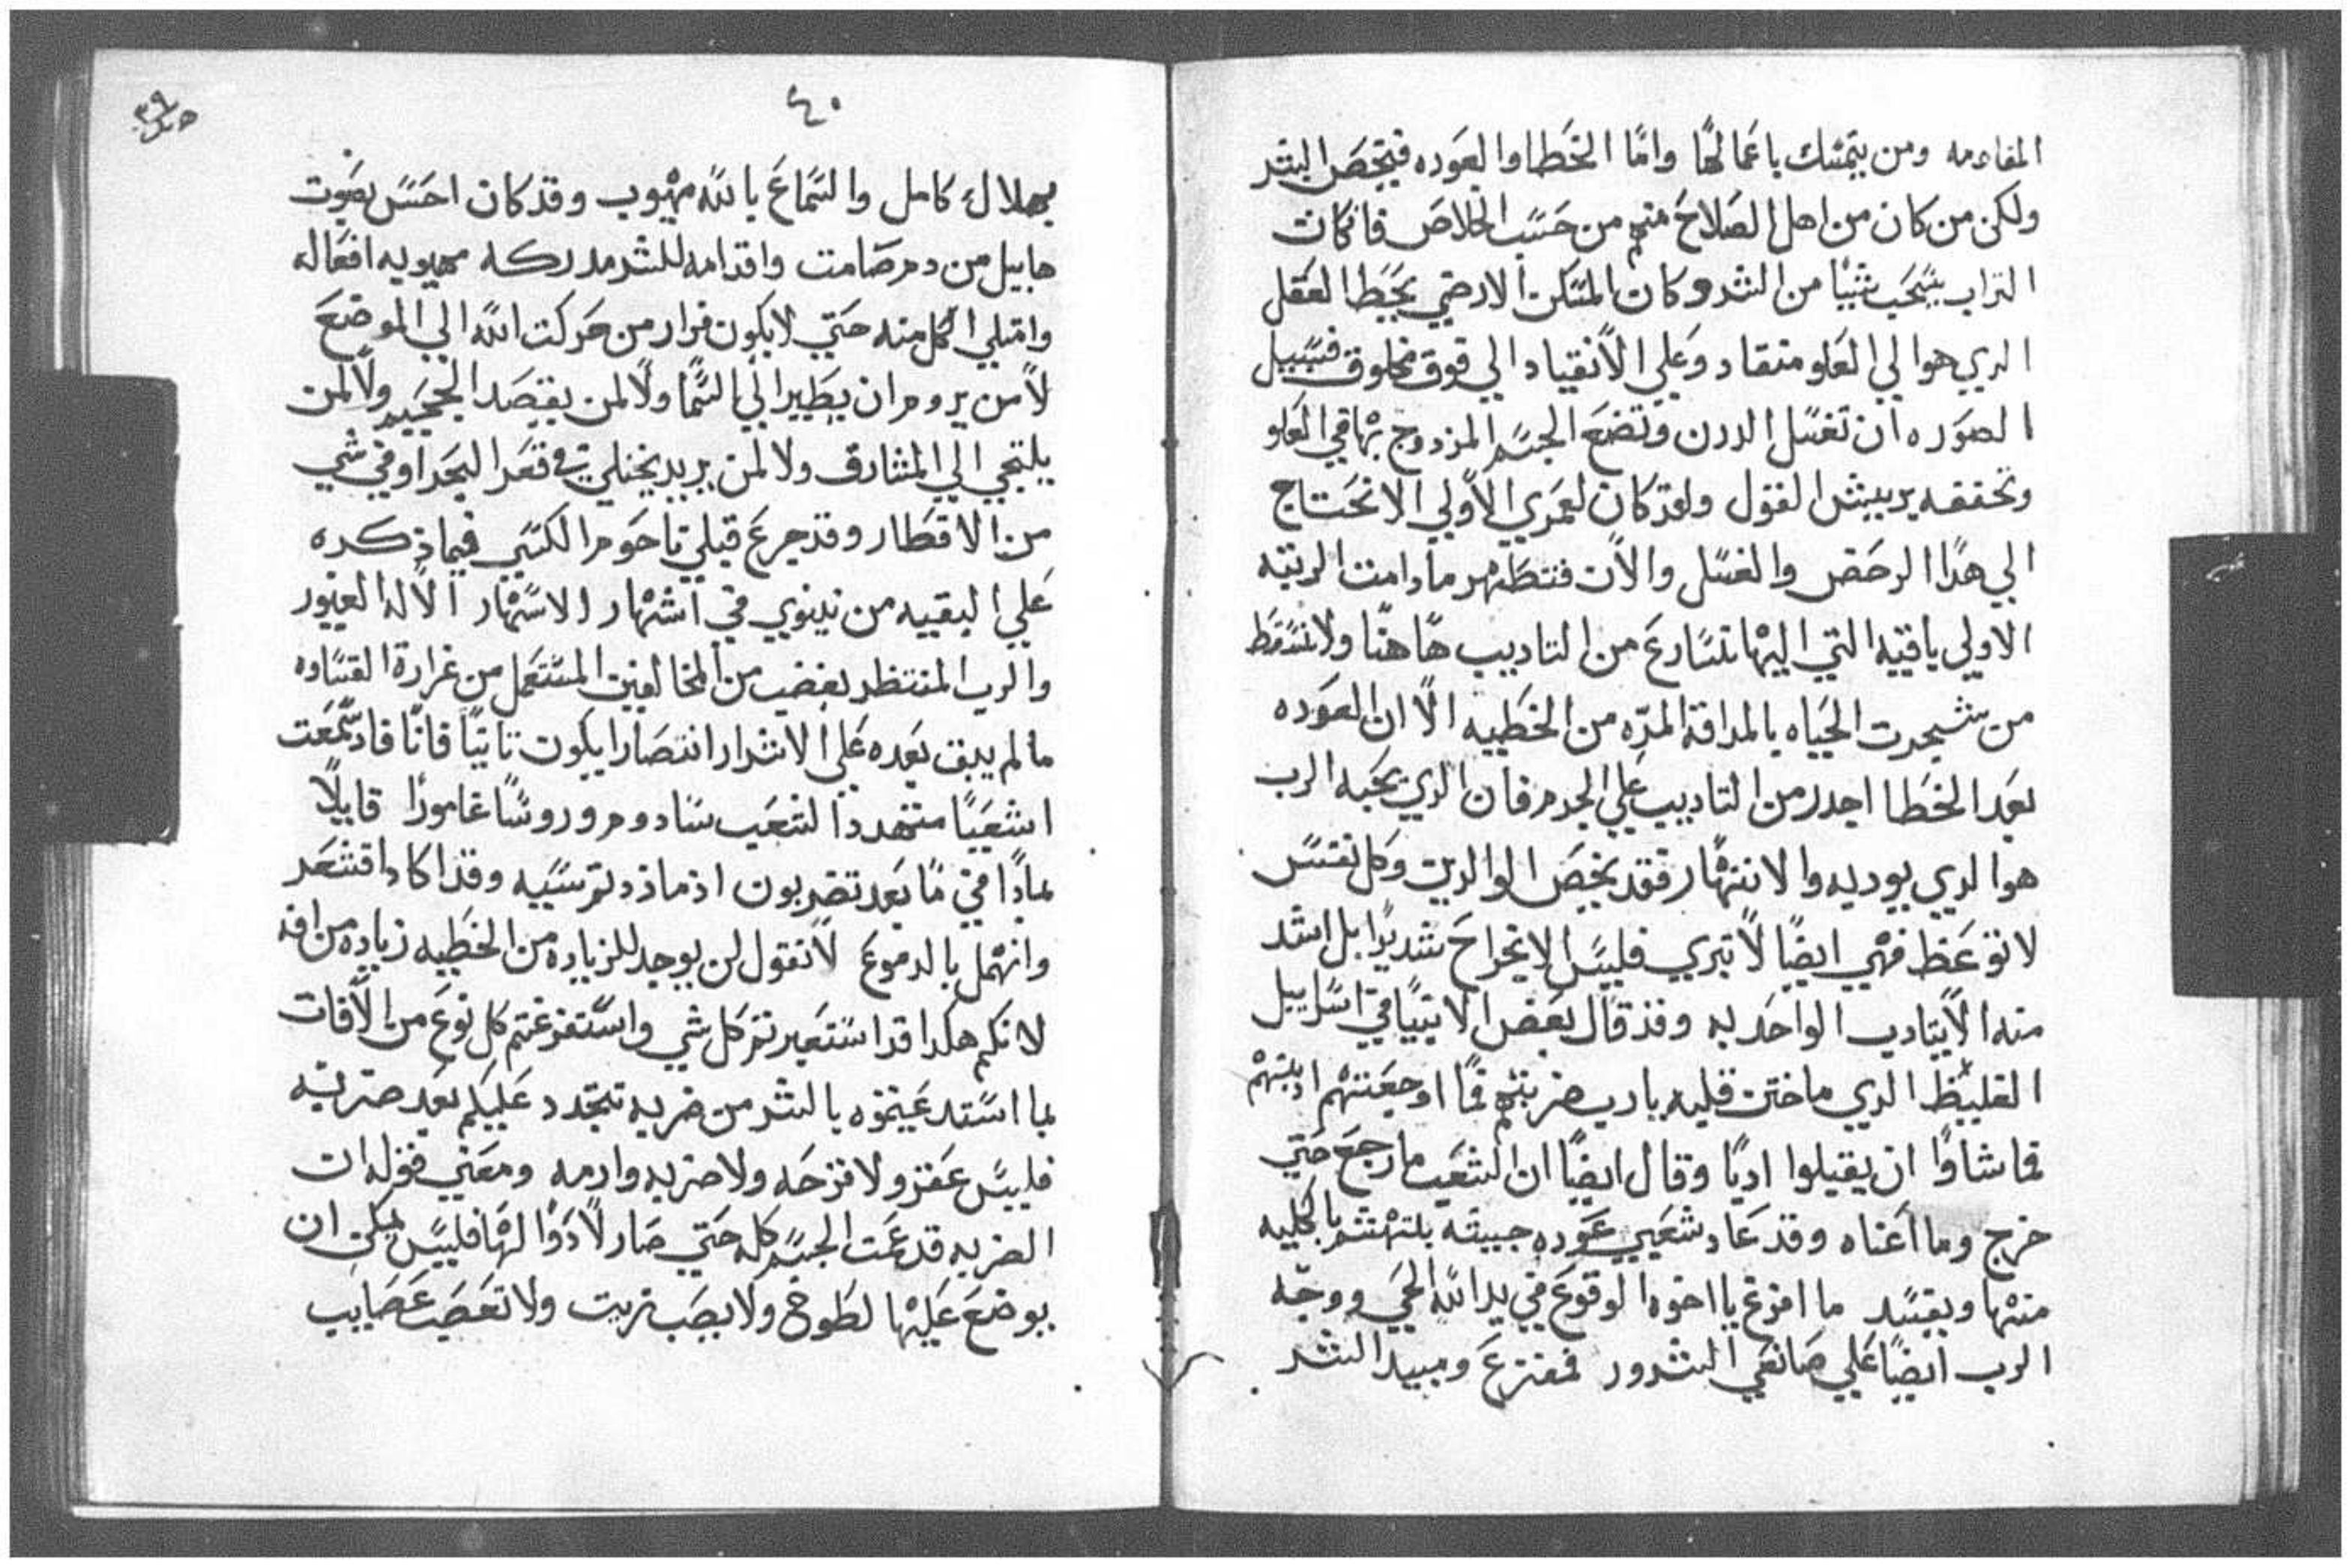 المقاومه ومن يتمسك باعمالها واما الخطا والعوده فيخص البشر
ولكن من كان من اهل الصلاح منهم من حسب الخلاص فان كان
التراب يسحب شيا من الشر وكان المسكن الارضي يحيط العقل
الدي هو الي العلو منقاد وعلي الانقياد الي فوق مخلوق فسبيل
الصوره ان تغسل الدرن وتضع الجسم المزدوج بها في العلو
وتخففه بريش القول ولقد كان لعمري الاولي الا نحتاج
الي هدا الرحض والغسل والان فنتطهر ما دامت الرتبه
الاولي باقيه التي اليها نسارع من التاديب هاهنا ولا نسقط
من شجرت الحياه بالمداقة المره من الخطيه الا ان العوده
بعد الخطا اجدر من التاديب علي الجرم فان الدي يحبه الرب
هو الدي يوديه والانتهار فقد يخص الوالدين وكل نفس
لا توعظ فهي ايضا لا تبري فليس الانجراح شديدا بل اشد
منه الا يتادب الواحد به وقد قال بعض الانبيا في اسراييل
الغليظ الدي ما ختن قلبه يارب ضربتهم فما اوجعتهم ادبتهم
فما شاوا ان يقبلوا ادبا وقال ايضا ان الشعب ما رجع حتي
خرج وما اعناه وقد عاد شعبي عوده خبيثه بلتهشم بالكليه
منها ويفسد ما افزع يا اخوه الوقوع في يد الله الحي ووجه
الرب ايضا علي صانعي الشرور فمفزع ومبيد الشر
٤٠
بهلاك كامل والسماع بالله مهوب وقد كان احسس بصوت
هابيل من دم صامت واقدامه للشر مدركه مهوبه افعاله
وامتلي الكل منه حتي لا يكون فرار من حركت الله الي الموضع
لا من يروم ان يطير الي السما ولا لمن يقصد الجحيم ولا لمن
يلتجي الي المشارق ولا لمن يريد يختلي في قعر البحر او في شي
من الاقطار وقد جرع قبلي ناحوم الكسي فيما ذكره
علي البقيه من نينوي في اشهار الاسهار الاله الغيور
والرب المنتظر بغضب من المخالفين المستعمل من غرارة القساوه
ما لم يبق بعده علي الاشرار انتصارا يكون تانيا فانا فاد سمعت
اشعيا متهددا لشعب سادوم وروسا غامورا قايلا
لمادا في ما بعد تضربون اذ ما زدتم سيه وقد اكاد اقشعر
وانهمل بالدموع لا نقول لن يوجد للزياده من الخطيه زياده من افه
لانكم هكدا قد استعبرتم كل شي واستفرغتم كل نوع من الافات
لما استدعيتموه بالشر من ضربه تتجدد عليكم بعد ضربه
فليس عقر ولا قرحه ولا ضربه وارمه ومعني قوله ان
الضربه قد عمت الجسم كله حتي صار لا دوا لها فليس يمكن ان
يوضع عليها لطوخ ولا يصب زيت ولا تعصب عصايب